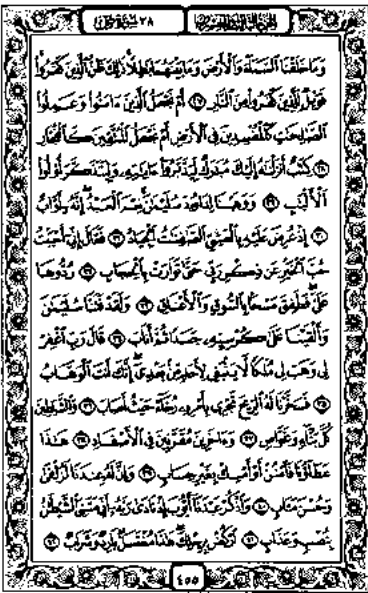 الجزء الثالث والعشرون ٣٨ سورة ص
وَمَا خَلَقْنَا ٱلسَّمَآءَ وَٱلْأَرْضَ وَمَا بَيْنَهُمَا بَٰطِلًا ۚ ذَٰلِكَ ظَنُّ ٱلَّذِينَ كَفَرُوا۟ ۚ
فَوَيْلٌ لِّلَّذِينَ كَفَرُوا۟ مِنَ ٱلنَّارِ ٢٧ أَمْ نَجْعَلُ ٱلَّذِينَ ءَامَنُوا۟ وَعَمِلُوا۟
ٱلصَّٰلِحَٰتِ كَٱلْمُفْسِدِينَ فِى ٱلْأَرْضِ أَمْ نَجْعَلُ ٱلْمُتَّقِينَ كَٱلْفُجَّارِ
٢٨ كِتَٰبٌ أَنزَلْنَٰهُ إِلَيْكَ مُبَٰرَكٌ لِّيَدَّبَّرُوٓا۟ ءَايَٰتِهِۦ وَلِيَتَذَكَّرَ أُو۟لُوا۟
ٱلْأَلْبَٰبِ ٢٩ وَوَهَبْنَا لِدَاوُۥدَ سُلَيْمَٰنَ ۚ نِعْمَ ٱلْعَبْدُ ۖ إِنَّهُۥٓ أَوَّابٌ
٣٠ إِذْ عُرِضَ عَلَيْهِ بِٱلْعَشِىِّ ٱلصَّٰفِنَٰتُ ٱلْجِيَادُ ٣١ فَقَالَ إِنِّىٓ أَحْبَبْتُ
حُبَّ ٱلْخَيْرِ عَن ذِكْرِ رَبِّى حَتَّىٰ تَوَارَتْ بِٱلْحِجَابِ ٣٢ رُدُّوهَا
عَلَىَّ ۖ فَطَفِقَ مَسْحًۢا بِٱلسُّوقِ وَٱلْأَعْنَاقِ ٣٣ وَلَقَدْ فَتَنَّا سُلَيْمَٰنَ
وَأَلْقَيْنَا عَلَىٰ كُرْسِيِّهِۦ جَسَدًا ثُمَّ أَنَابَ ٣٤ قَالَ رَبِّ ٱغْفِرْ
لِى وَهَبْ لِى مُلْكًا لَّا يَنۢبَغِى لِأَحَدٍ مِّنۢ بَعْدِىٓ ۖ إِنَّكَ أَنتَ ٱلْوَهَّابُ
٣٥ فَسَخَّرْنَا لَهُ ٱلرِّيحَ تَجْرِى بِأَمْرِهِۦ رُخَآءً حَيْثُ أَصَابَ ٣٦ وَٱلشَّيَٰطِينَ
كُلَّ بَنَّآءٍ وَغَوَّاصٍ ٣٧ وَءَاخَرِينَ مُقَرَّنِينَ فِى ٱلْأَصْفَادِ ٣٨ هَٰذَا
عَطَآؤُنَا فَٱمْنُنْ أَوْ أَمْسِكْ بِغَيْرِ حِسَابٍ ٣٩ وَإِنَّ لَهُۥ عِندَنَا لَزُلْفَىٰ
وَحُسْنَ مَـَٔابٍ ٤٠ وَٱذْكُرْ عَبْدَنَآ أَيُّوبَ إِذْ نَادَىٰ رَبَّهُۥٓ أَنِّى مَسَّنِىَ ٱلشَّيْطَٰنُ
بِنُصْبٍ وَعَذَابٍ ٤١ ٱرْكُضْ بِرِجْلِكَ ۖ هَٰذَا مُغْتَسَلٌۢ بَارِدٌ وَشَرَابٌ ٤٢
٤٥٥